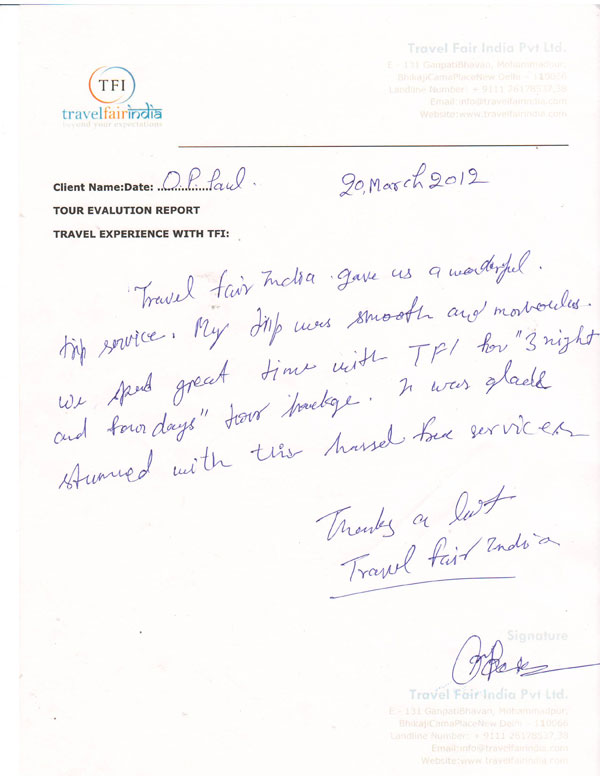 Travel Fair India Pvt Ltd.
E - 131 GanpatiBhavan, Mohammadpur,
BhikajiCamaPlaceNew Delhi - 110066
Landline Number: + 9111 26178537,38
Email:info@travelfairindia.com
Website:www.travelfairindia.com
TFI
travelfairindia
beyond your expectations
Client Name:Date: O.P. Paul. 20, March 2012
TOUR EVALUTION REPORT
TRAVEL EXPERIENCE WITH TFI:
Travel fair India gave us a wonderful.
trip service. My trip was smooth and
we spent great time with TFI for "3 night
and four days" tour . It was gladd
stunned with this hassel free services
Thanks a lot
Travel fair India
Signature
Travel Fair India Pvt Ltd.
E - 131 GanpatiBhavan, Mohammadpur,
BhikajiCamaPlaceNew Delhi - 110066
Landline Number: + 9111 26178537,38
Email:info@travelfairindia.com
Website:www.travelfairindia.com